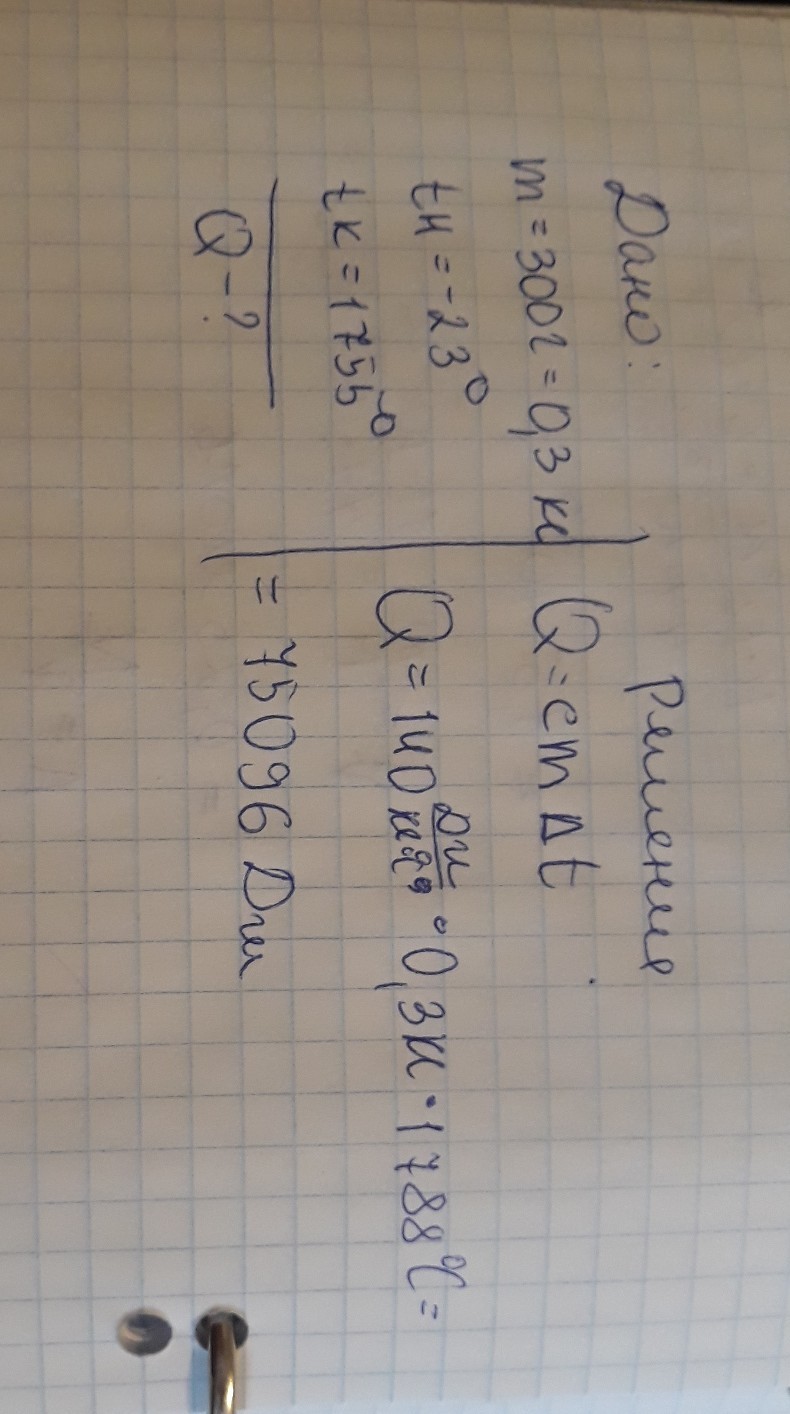 Дано:
m = 300г = 0,3 кг
tн = -23°
tк = 1755°
Q - ?
Решение
Q = cm Δt
Q = 140 Дж/кг°С · 0,3кг · 1788°С =
= 75096 Дж